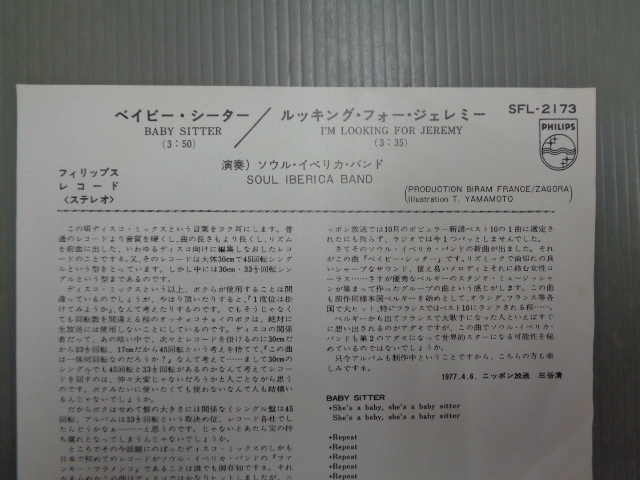 ベイビー・シーター
BABY SITTER
(3:50)
ルッキング・フォー・ジェレミー
I'M LOOKING FOR JEREMY
(3:35)
SFL-2173
PHILIPS
演奏) ソウル・イベリカ・バンド
SOUL IBERICA BAND
フィリップス
レコード
〈ステレオ〉
(PRODUCTION BIRAM FRANCE/ZAGORA)
(Illustration T. YAMAMOTO)
この頃ディスコ・ミックスという言葉をヨク耳にします。普
通のレコードより音質を硬くし、曲の長さもより長くし、リズム
を前面に出した、いわゆるディスコ向けに編集しなおしたレコ
ードのことです。ネ、又、そのレコードは大体30cmで45回転シング
ルという型をとっています。しかし中には30cm・33⅓回転シング
ルという型まであるのです。
ディスコ・ミックスという以上、ボクらが使用することは間
違っているのでしょうが、やはり頂いたりすると、『1度位は掛
けてみようか』なんて考えたりするのです。でもそうじゃなく
ても回転数を間違える程のオッチョコチョイのボクは、絶対に
生放送には使用しないことにしているのです。ディスコの関係
者だって、あの暗い中で、次々とレコードを掛けるのに30cmだ
から33⅓回転、17cmだから45回転という考えを捨てて、『この曲
は一体何回転なのだろうか？』なんて考えて……まして30cmの
シングルでも45回転と33⅓回転があるのかなんて考えてレコー
ドを回すのは、仲々大変じゃないだろうかと人ごとながら思う
のです。ボクみたいに使いたくても使わないなんて人も結構い
るんじゃないでしょうか。
だからボクはせめて盤の大きさには関係なくシングル盤は45
回転、アルバムは33⅓回転という取決め位、レコード各社でし
たらどうかなぁ……と思うのです。じゃないとあたら宝の持
ち腐れとなってしまうんじゃないでしょうか。
ところでその今話題にのぼったディスコ・ミックスのしかも
日本で初めてのレコードがソウル・イベリカ・バンドの『ファ
ンキー・フラメンコ』であることは誰でも御存知ですネ。それ
ッポン放送では10月のポピュラー新譜ベスト10の1曲に選定さ
れたにも拘らず、ラジオでは今1つパッとしませんでした。
さてそのソウル・イベリカ・バンドの新曲が出ました。それ
がこの曲『ベイビー・シッター』です。リズミックで歯切れの良
いシャープなサウンド、憶え易いメロディとそれに絡む女性コ
ーラス……さすが優秀なベルギーのスタジオ・ミュージッシャ
ンが集まって作ったグループの曲という感じがします。この曲
も前作同様本国ベルギーを始めとして、オランダ、フランス等各
国で大ヒット、特にフランスではベスト10にランクされる程……。
ベルギーから出てフランスで大歌手になった人といえばすぐ
に想い出されるのがアダモですが、この曲でソウル・イベリカ・
バンドも第2のアダモになって世界的スターになる可能性を秘
めているのではないでしょうか。
只今アルバムも制作中ということですから、こちらの方も楽
しみです。
1977.4.6. ニッポン放送 三谷清
BABY SITTER
• She's a baby, she's a baby sitter
She's a baby, she's a baby sitter
• Repeat
• Repeat
• Repeat
• Repeat